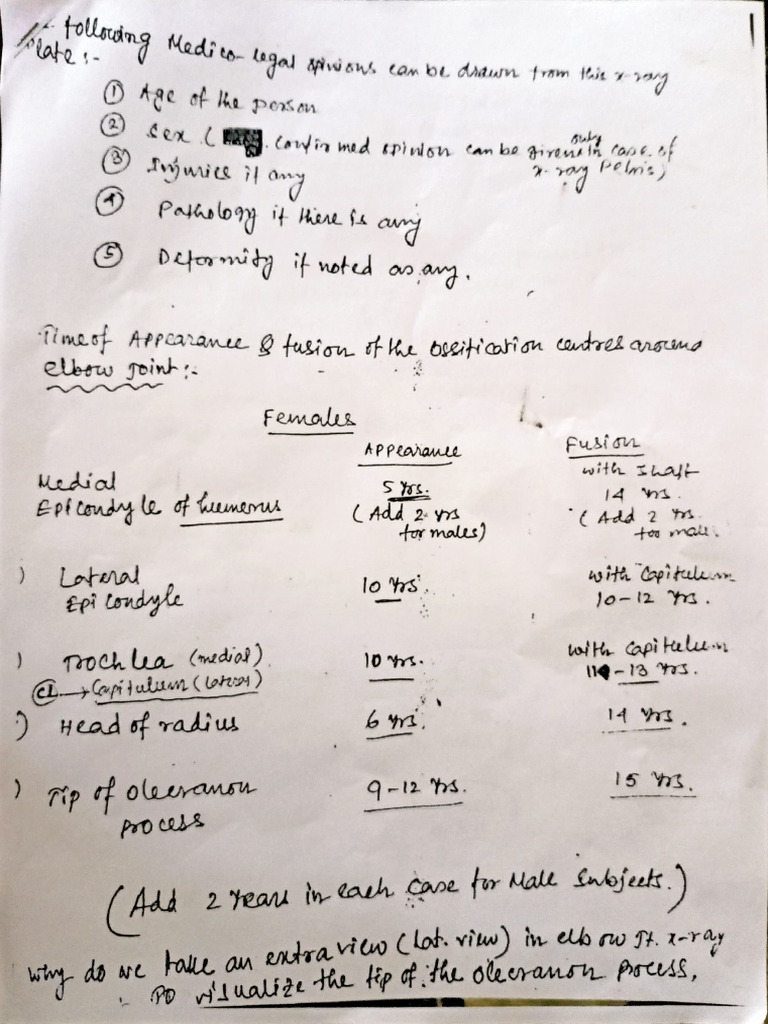 following Medico-legal opinions can be drawn from this x-ray
Plate :-
① Age of the person
② Sex. ( Confirmed opinion can be given only in case of x-ray Pelvis)
③ Injuries if any
④ Pathology if there is any
⑤ Deformity if noted as any.
Time of Appearance & fusion of the Ossification centres around
elbow joint :-
Females
Appearance Fusion
Medial 5 Yrs. with Shaft
Epicondyle of humerus (Add 2 yrs 14 Yrs.
for males) (Add 2 Yrs.
too male.
) Lateral 10 Yrs. with Capitulum
Epicondyle 10-12 Yrs.
) Trochlea (medial) 10 Yrs. with Capitulum
C1 → Capitulum (lateral) 11-13 Yrs.
) Head of radius 6 Yrs. 14 Yrs.
) Tip of Olecranon 9-12 Yrs. 15 Yrs.
process
(Add 2 Years in each case for Male Subjects.)
Why do we take an extra view (Lat. view) in elbow Jt. x-ray
visualize the tip of the olecranon process.